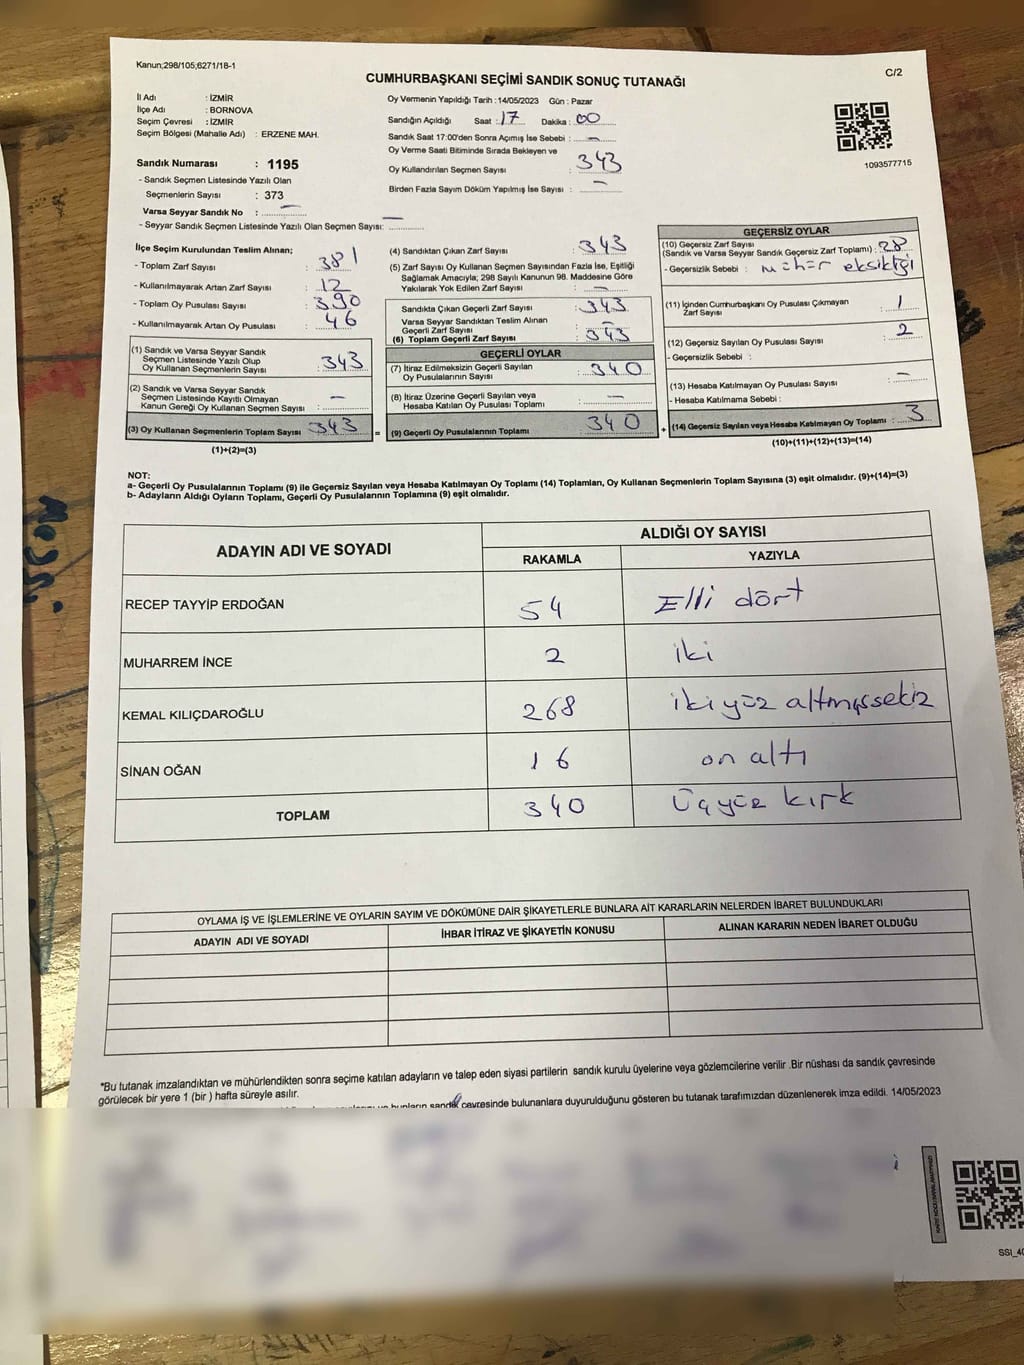 Kanun;298/105;6271/18-1
C/2
CUMHURBAŞKANI SEÇİMİ SANDIK SONUÇ TUTANAĞI
İl Adı : İZMİR
İlçe Adı : BORNOVA
Seçim Çevresi : İZMİR
Seçim Bölgesi (Mahalle Adı) : ERZENE MAH.
Sandık Numarası : 1195
- Sandık Seçmen Listesinde Yazılı Olan
Seçmenlerin Sayısı : 373
Varsa Seyyar Sandık No : —
- Seyyar Sandık Seçmen Listesinde Yazılı Olan Seçmen Sayısı: —
Oy Vermenin Yapıldığı Tarih : 14/05/2023 Gün : Pazar
Sandığın Açıldığı Saat : 17 Dakika : 00
Sandık Saat 17:00'den Sonra Açımış İse Sebebi : —
Oy Verme Saati Bitiminde Sırada Bekleyen ve
Oy Kullandırılan Seçmen Sayısı : 343
Birden Fazla Sayım Döküm Yapılmış İse Sayısı : —
1093577715
İlçe Seçim Kurulundan Teslim Alınan;
- Toplam Zarf Sayısı : 381
- Kullanılmayarak Artan Zarf Sayısı : 12
- Toplam Oy Pusulası Sayısı : 390
- Kullanılmayarak Artan Oy Pusulası : 46
(1) Sandık ve Varsa Seyyar Sandık
Seçmen Listesinde Yazılı Olup
Oy Kullanan Seçmenlerin Sayısı : 343
(2) Sandık ve Varsa Seyyar Sandık
Seçmen Listesinde Kayıtlı Olmayan
Kanun Gereği Oy Kullanan Seçmen Sayısı : —
(3) Oy Kullanan Seçmenlerin Toplam Sayısı : 343
(1)+(2)=(3)
(4) Sandıktan Çıkan Zarf Sayısı : 343
(5) Zarf Sayısı Oy Kullanan Seçmen Sayısından Fazla İse, Eşitliği
Sağlamak Amacıyla; 298 Sayılı Kanunun 98. Maddesine Göre
Yakılarak Yok Edilen Zarf Sayısı : —
Sandıkta Çıkan Geçerli Zarf Sayısı : 343
Varsa Seyyar Sandıktan Teslim Alınan
Geçerli Zarf Sayısı : —
(6) Toplam Geçerli Zarf Sayısı : 343
GEÇERLİ OYLAR
(7) İtiraz Edilmeksizin Geçerli Sayılan
Oy Pusulalarının Sayısı : 340
(8) İtiraz Üzerine Geçerli Sayılan veya
Hesaba Katılan Oy Pusulası Toplamı : —
= (9) Geçerli Oy Pusulalarının Toplamı : 340
GEÇERSİZ OYLAR
(10) Geçersiz Zarf Sayısı
(Sandık ve Varsa Seyyar Sandık Geçersiz Zarf Toplamı) : 28
- Geçersizlik Sebebi : mühür eksikliği
(11) İçinden Cumhurbaşkanı Oy Pusulası Çıkmayan
Zarf Sayısı : 1
(12) Geçersiz Sayılan Oy Pusulası Sayısı : 2
- Geçersizlik Sebebi :
(13) Hesaba Katılmayan Oy Pusulası Sayısı : —
- Hesaba Katılmama Sebebi :
+ (14) Geçersiz Sayılan veya Hesaba Katılmayan Oy Toplamı : 3
(10)+(11)+(12)+(13)=(14)
NOT:
a- Geçerli Oy Pusulalarının Toplamı (9) ile Geçersiz Sayılan veya Hesaba Katılmayan Oy Toplamı (14) Toplamları, Oy Kullanan Seçmenlerin Toplam Sayısına (3) eşit olmalıdır. (9)+(14)=(3)
b- Adayların Aldığı Oyların Toplamı, Geçerli Oy Pusulalarının Toplamına (9) eşit olmalıdır.
ADAYIN ADI VE SOYADI ALDIĞI OY SAYISI
RAKAMLA YAZIYLA
RECEP TAYYİP ERDOĞAN 54 Elli dört
MUHARREM İNCE 2 iki
KEMAL KILIÇDAROĞLU 268 ikiyüz altmışsekiz
SİNAN OĞAN 16 on altı
TOPLAM 340 Üçyüz kırk
OYLAMA İŞ VE İŞLEMLERİNE VE OYLARIN SAYIM VE DÖKÜMÜNE DAİR ŞİKAYETLERLE BUNLARA AİT KARARLARIN NELERDEN İBARET BULUNDUKLARI
ADAYIN ADI VE SOYADI İHBAR İTİRAZ VE ŞİKAYETİN KONUSU ALINAN KARARIN NEDEN İBARET OLDUĞU
*Bu tutanak imzalandıktan ve mühürlendikten sonra seçime katılan adayların ve talep eden siyasi partilerin sandık kurulu üyelerine veya gözlemcilerine verilir .Bir nüshası da sandık çevresinde
görülecek bir yere 1 (bir ) hafta süreyle asılır.
bunların sandık çevresinde bulunanlara duyurulduğunu gösteren bu tutanak tarafımızdan düzenlenerek imza edildi. 14/05/2023
SSI_40